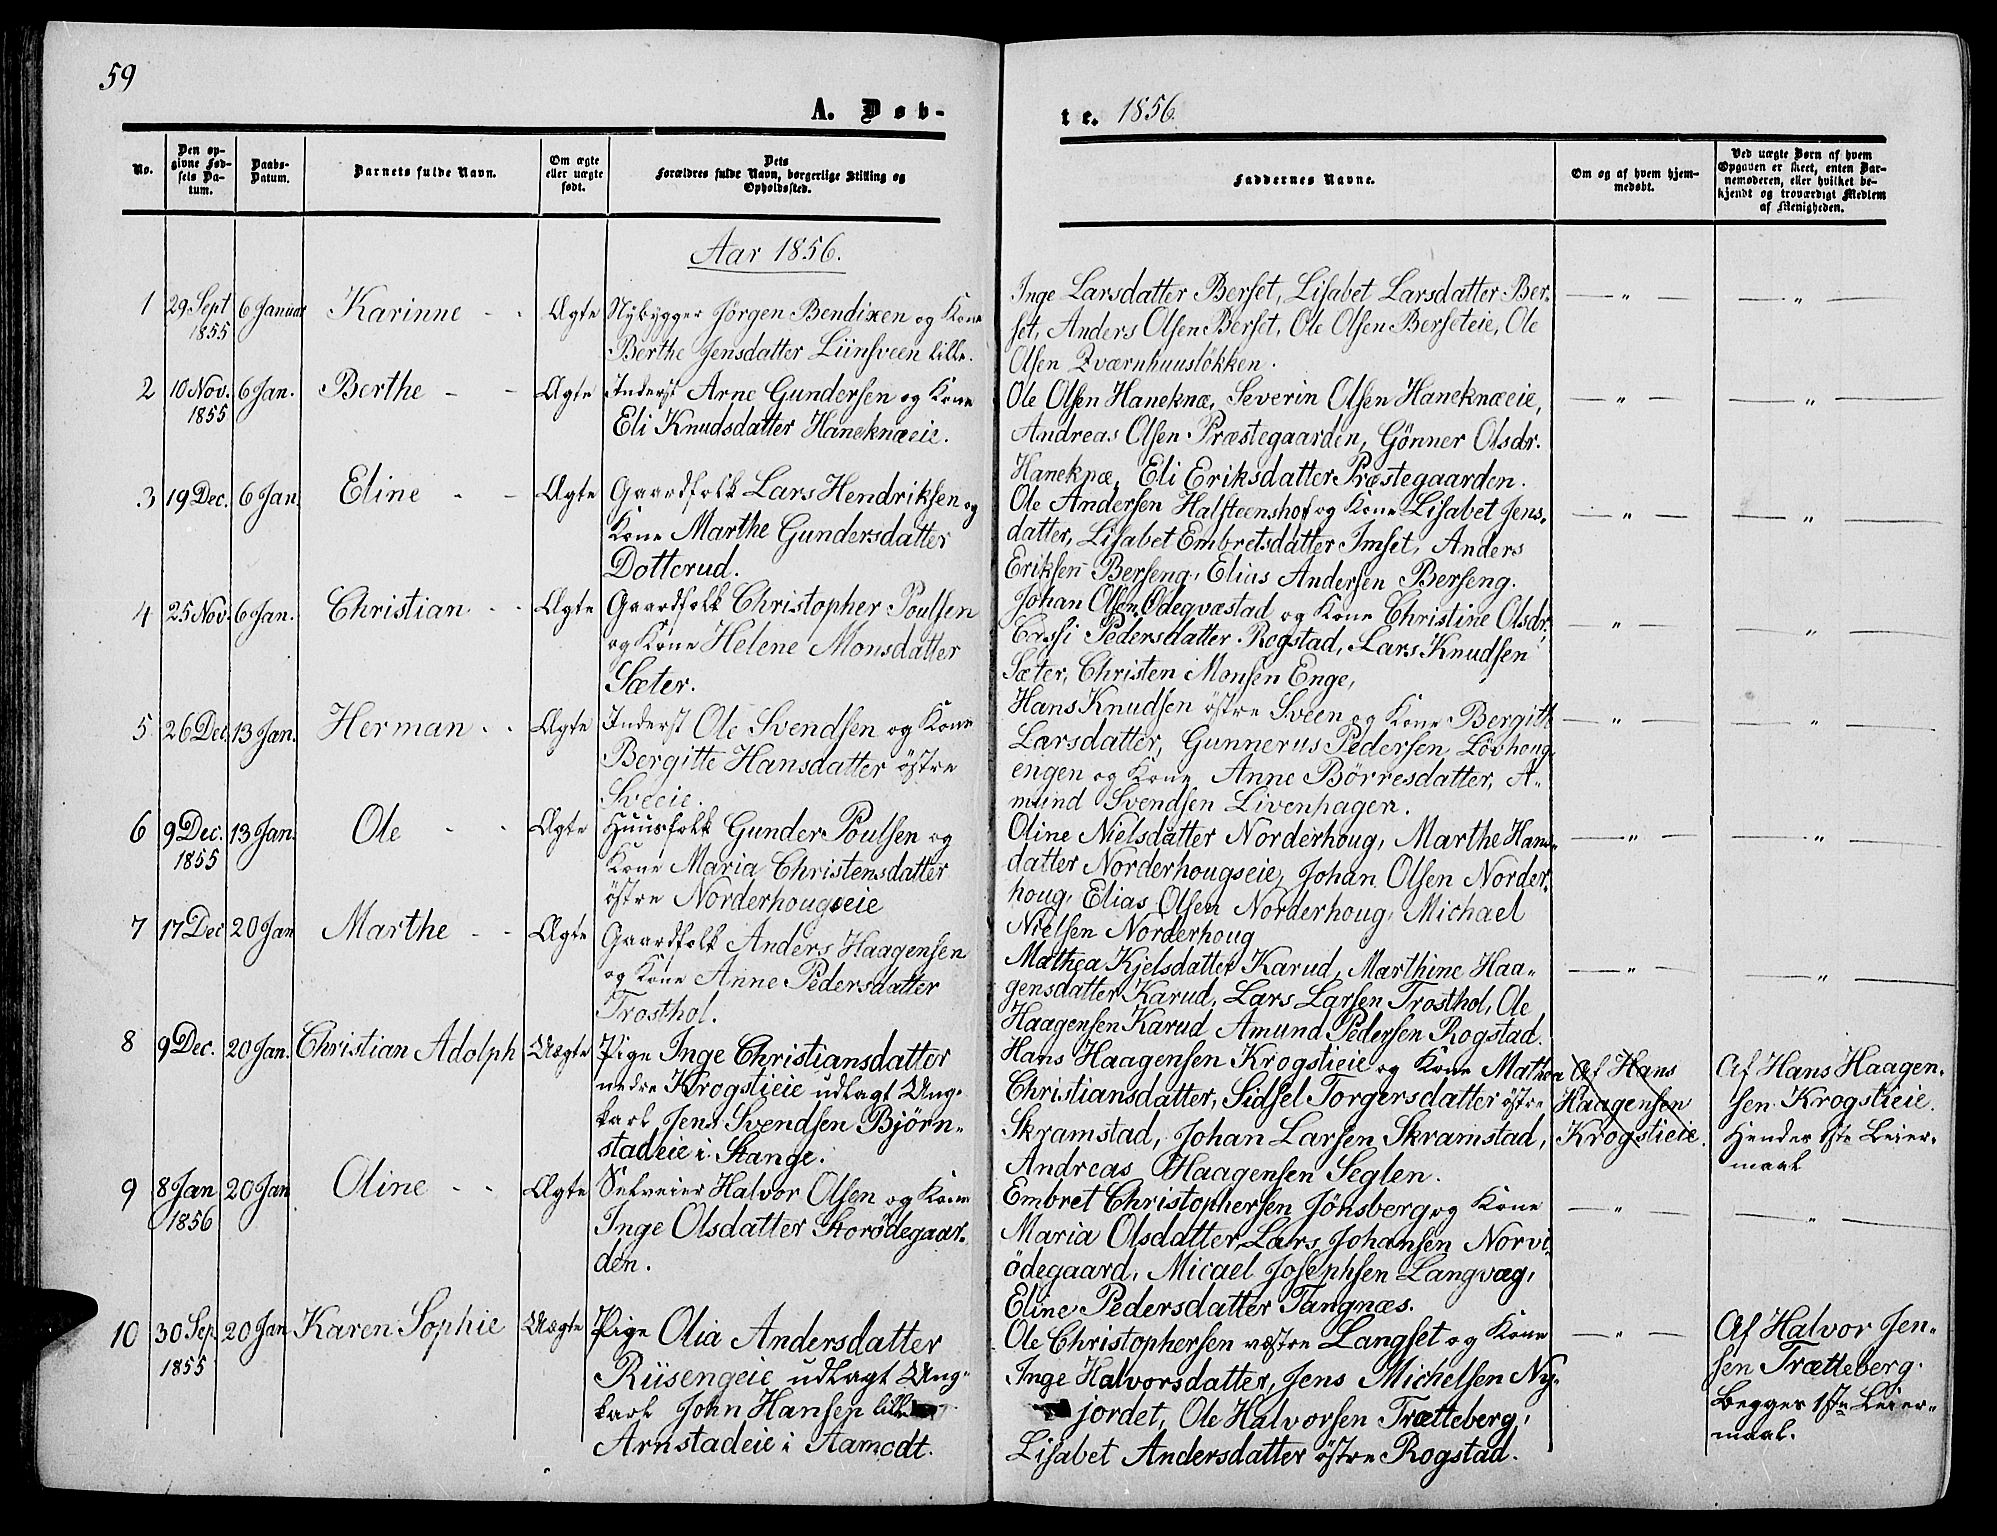 59
A. Døb-
te. 1856.
No.
Den op-
givne Fød-
sels Da-
tum.
Daabs-
Datum.
Barnets fulde Navn.
Om ægte
eller uægte
født.
Dets
Forældres fulde Navn, borgerlige Stilling og
Opholdssted.
Faddernes Navne.
Om og af hvem hjem-
medøbt.
Ved uægte Børn af hvem
Opgaven er skeet, enten Bar-
nemoderen, eller hvilket be-
kjendt og troværdigt Medlem
af Menigheden.
Aar 1856.
1 29 Sept 1855 6 Januar Karinne - - Ægte
Nybygger Jörgen Bendixen og Kone
Berthe Jensdatter Liinsveen lille.
Inge Larsdatter Berset, Lisabet Larsdatter Ber-
set, Anders Olsen Berset, Ole Olsen Berseteie, Ole
Olsen Qværnhuusløkken.
— " — — " —
2 10 Nov. 1855 6 Jan. Berthe - - Ægte
Inderst Arne Gundersen og Kone
Eli Knudsdatter Haneknæeie.
Ole Olsen Haneknæ, Severin Olsen Haneknæeie,
Andreas Olsen Præstegaarden, Gönner Olsdr.
Haneknæ, Eli Eriksdatter Præstegaarden.
— " — — " —
3 19 Dec. 6 Jan. Eline - - Ægte
Gaardfolk Lars Hendriksen og
Kone Marthe Gundersdatter
Dotterud.
Ole Andersen Halsteenshof og Kone Lisabet Jens-
datter, Lisabet Embretsdatter Imset, Anders
Eriksen Berseng, Elias Andersen Berseng.
— " — — " —
4 25 Nov. 6 Jan. Christian - - Ægte
Gaardfolk Christopher Poulsen
og Kone Helene Monsdatter
Sæter.
Johan Olsen Ödegvæstad og Kone Christine Olsdr,
Pedersdatter Rogstad, Lars Knudsen
Sæter, Christen Monsen Enge,
— " — — " —
5 26 Dec. 13 Jan. Herman - - Ægte
Inderst Ole Svendsen og Kone
Bergitte Hansdatter östre
Sveeie.
Hans Knudsen östre Sveen og Kone Bergitte
Larsdatter, Gunnerus Pedersen Lövhoug-
engen og Kone Anne Börresdatter, A-
mund Svendsen Livenhagen.
— " — — " —
6 9 Dec. 1855 13 Jan. Ole - - Ægte
Huusfolk Gunder Poulsen og
Kone Maria Christensdatter
östre Norderhougseie
Oline Nielsdatter Norderhoug, Marthe Hans-
datter Norderhougseie, Johan Olsen Norder-
houg, Elias Olsen Norderhoug, Michael
Nielsen Norderhoug
— " — — " —
7 17 Dec 20 Jan Marthe - - Ægte
Gaardfolk Anders Haagensen
og Kone Anne Pedersdatter
Trosthol.
Mathea Kjelsdatter Karud, Marthine Haa-
gensdatter Karud, Lars Larsen Trosthol, Ole
Haagensen Karud Amund Pedersen Rogstad.
— " — — " —
8 9 Dec. 20 Jan. Christian Adolph Uægte
Pige Inge Christiansdatter
nedre Krogstieie udlagt Ung-
karl Jens Svendsen Björn-
stadeie i Stange.
Hans Haagensen Krogstieie og Kone Mathea
Christiansdatter, Sidsel Torgersdatter östre
Skramstad, Johan Larsen Skramstad,
Andreas Haagensen Seglen.
Af Hans
Haagensen
Krogstieie.
Af Hans Haagen-
sen Krogstieie.
Hendes 1ste Leier-
maal
9 8 Jan 1856 20 Jan Oline - - Ægte
Selveier Halvor Olsen og Kone
Inge Olsdatter Storödegaar-
den.
Embret Christophersen Jönsberg og Kone
Maria Olsdatter, Lars Johansen Norvi-
ödegaard, Micael Josephsen Langvæg,
Eline Pedersdatter Tangnæs.
— " — — " —
10 30 Sep. 1855 20 Jan Karen Sophie Uægte
Pige Olia Andersdatter
Riisengeie udlagt Ung-
karl John Hansen lille
Arnstadeie i Aamodt.
Ole Christophersen vestre Langset og Kone
Inge Halvorsdatter, Jens Michelsen Ny-
jordet, Ole Halvorsen Trætteberg,
Lisabet Andersdatter östre Rogstad.
— " —
Af Halvor Jen-
sen Trætteberg.
Begges 1ste Leier-
maal.